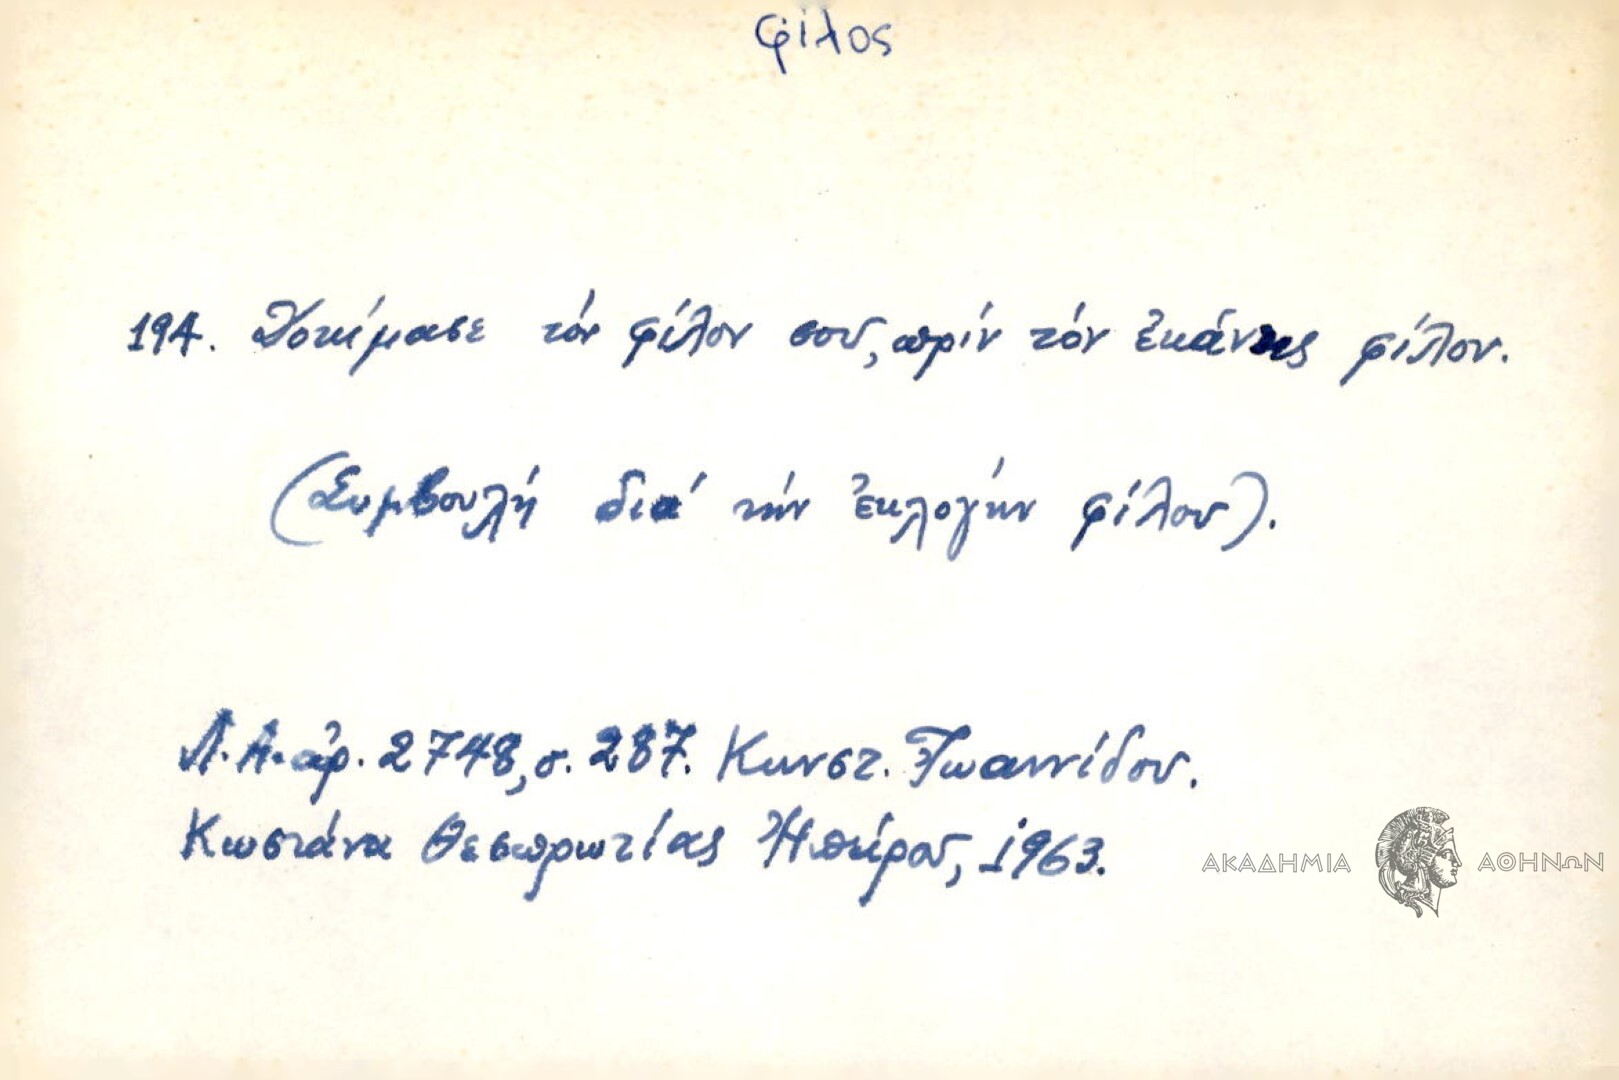 φίλος
194. Δοκίμασε τόν φίλον σου, πρίν τόν ἐκάνεις φίλον.
(Συμβουλή διά τήν ἐκλογήν φίλου).
Λ.Α. ἀρ. 2748, σ. 287. Κωνστ. Ἰωαννίδου.
Κωστάνα Θεσπρωτίας Ἠπείρου, 1963.
ΑΚΑΔΗΜΙΑ ΑΘΗΝΩΝ